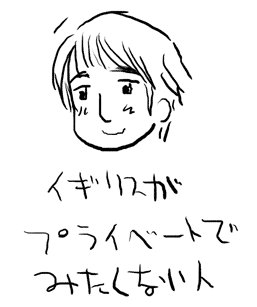 イギリスが
プライベートで
みたくない人